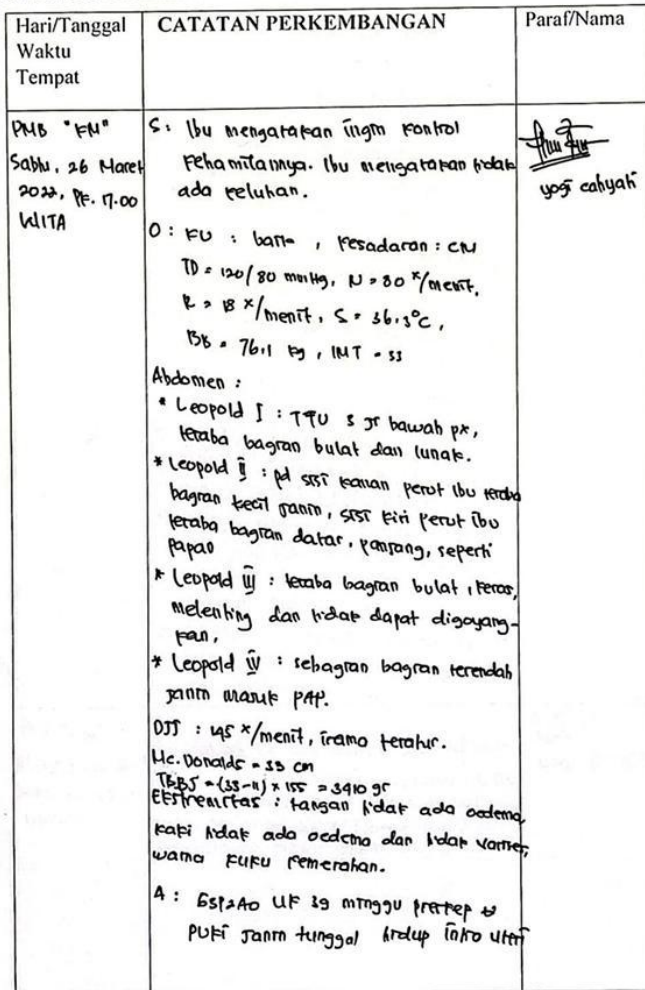 Hari/Tanggal
Waktu
Tempat
CATATAN PERKEMBANGAN
Paraf/Nama
PMB "KM"
Sabtu, 26 Maret
2022, Pk. 17.00
WITA
S: Ibu mengatakan ingin kontrol
kehamilannya. Ibu mengatakan tidak
ada keluhan.
O: KU : baik, kesadaran : CM
TD = 120/80 mmHg, N = 80 x/menit,
R = 18 x/menit, S = 36,3°C,
BB = 76,1 kg, IMT = 33
Abdomen :
* Leopold I : TFU 3 jr bawah px,
teraba bagian bulat dan lunak.
* Leopold II : pd sisi kanan perut ibu teraba
bagian kecil janin, sisi kiri perut ibu
teraba bagian datar, panjang, seperti
papan
* Leopold III : teraba bagian bulat, keras,
melenting dan tidak dapat digoyang-
kan,
* Leopold IV : sebagian bagian terendah
janin masuk PAP.
DJJ : 145 x/menit, irama teratur.
Mc.Donalds = 33 cm
TBBJ = (33-11) x 155 = 3410 gr
Ekstremitas : tangan tidak ada oedema,
kaki tidak ada oedema dan tidak varises,
warna kuku kemerahan.
A : UK 39 minggu preskep
PUKI janin tunggal hidup intra uteri
yogi cahyati